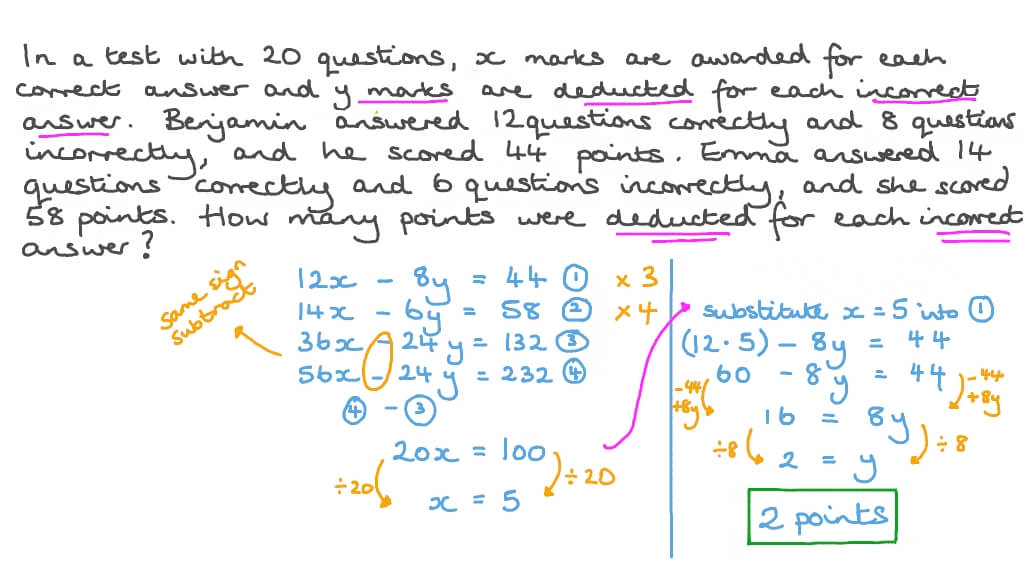 In a test with 20 questions, x marks are awarded for each
correct answer and y marks are deducted for each incorrect
answer. Benjamin answered 12 questions correctly and 8 questions
incorrectly, and he scored 44 points. Emma answered 14
questions correctly and 6 questions incorrectly, and she scored
58 points. How many points were deducted for each incorrect
answer?
same sign
subtract
12x - 8y = 44 ① × 3
14x - 6y = 58 ② × 4
36x - 24y = 132 ③
56x - 24y = 232 ④
④ - ③
20x = 100
÷20 ÷20
x = 5
substitute x = 5 into ①
(12·5) - 8y = 44
60 - 8y = 44
-44 -44
+8y +8y
16 = 8y
÷8 ÷8
2 = y
2 points